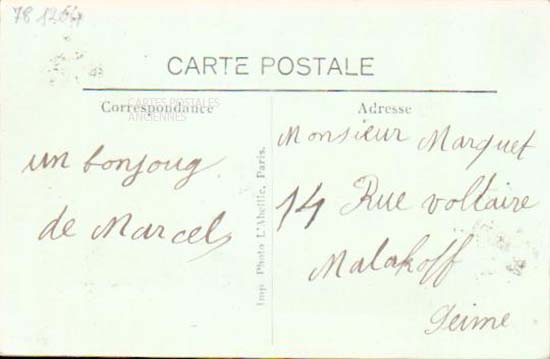 78 1264
CARTE POSTALE
Correspondance
CARTES POSTALES
ANCIENNES
un bonjoug
de Marcel
Adresse
Monsieur Marquet
14 Rue voltaire
Malakoff
Seime
Imp Photo L'Abeille, Paris.